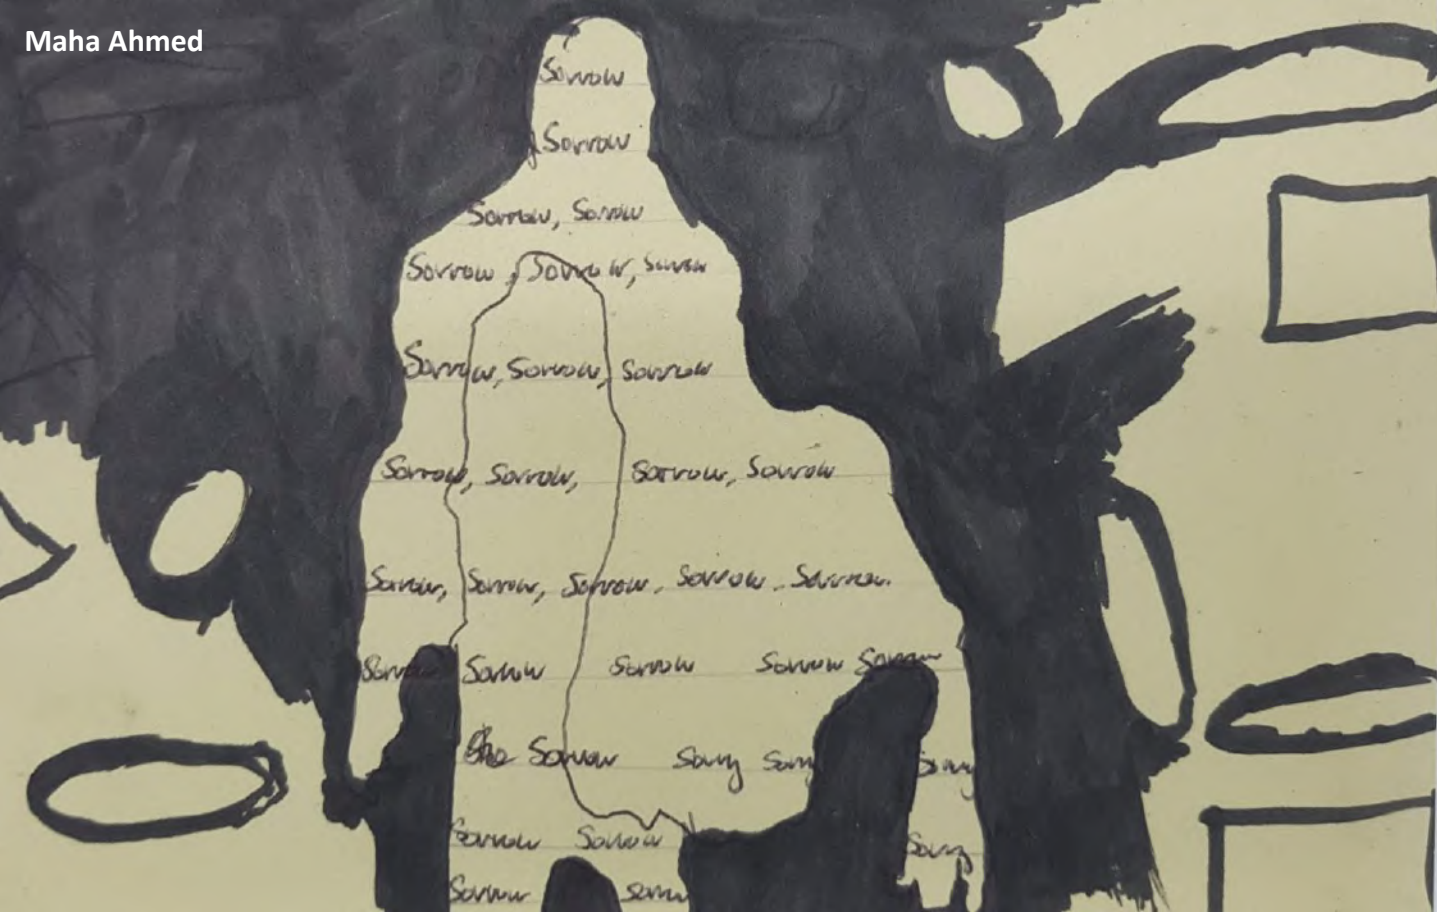 Maha Ahmed
Sorrow
Sorrow
Sorrow, Sorrow
Sorrow, Sorrow, Sorrow
Sorrow, Sorrow, Sorrow
Sorrow, Sorrow, Sorrow, Sorrow
Sorrow, Sorrow, Sorrow, Sorrow, Sorrow.
Sorrow Sorrow Sorrow Sorrow
Sorrow Sorry
Sorrow Sorrow Sorry
Sorrow